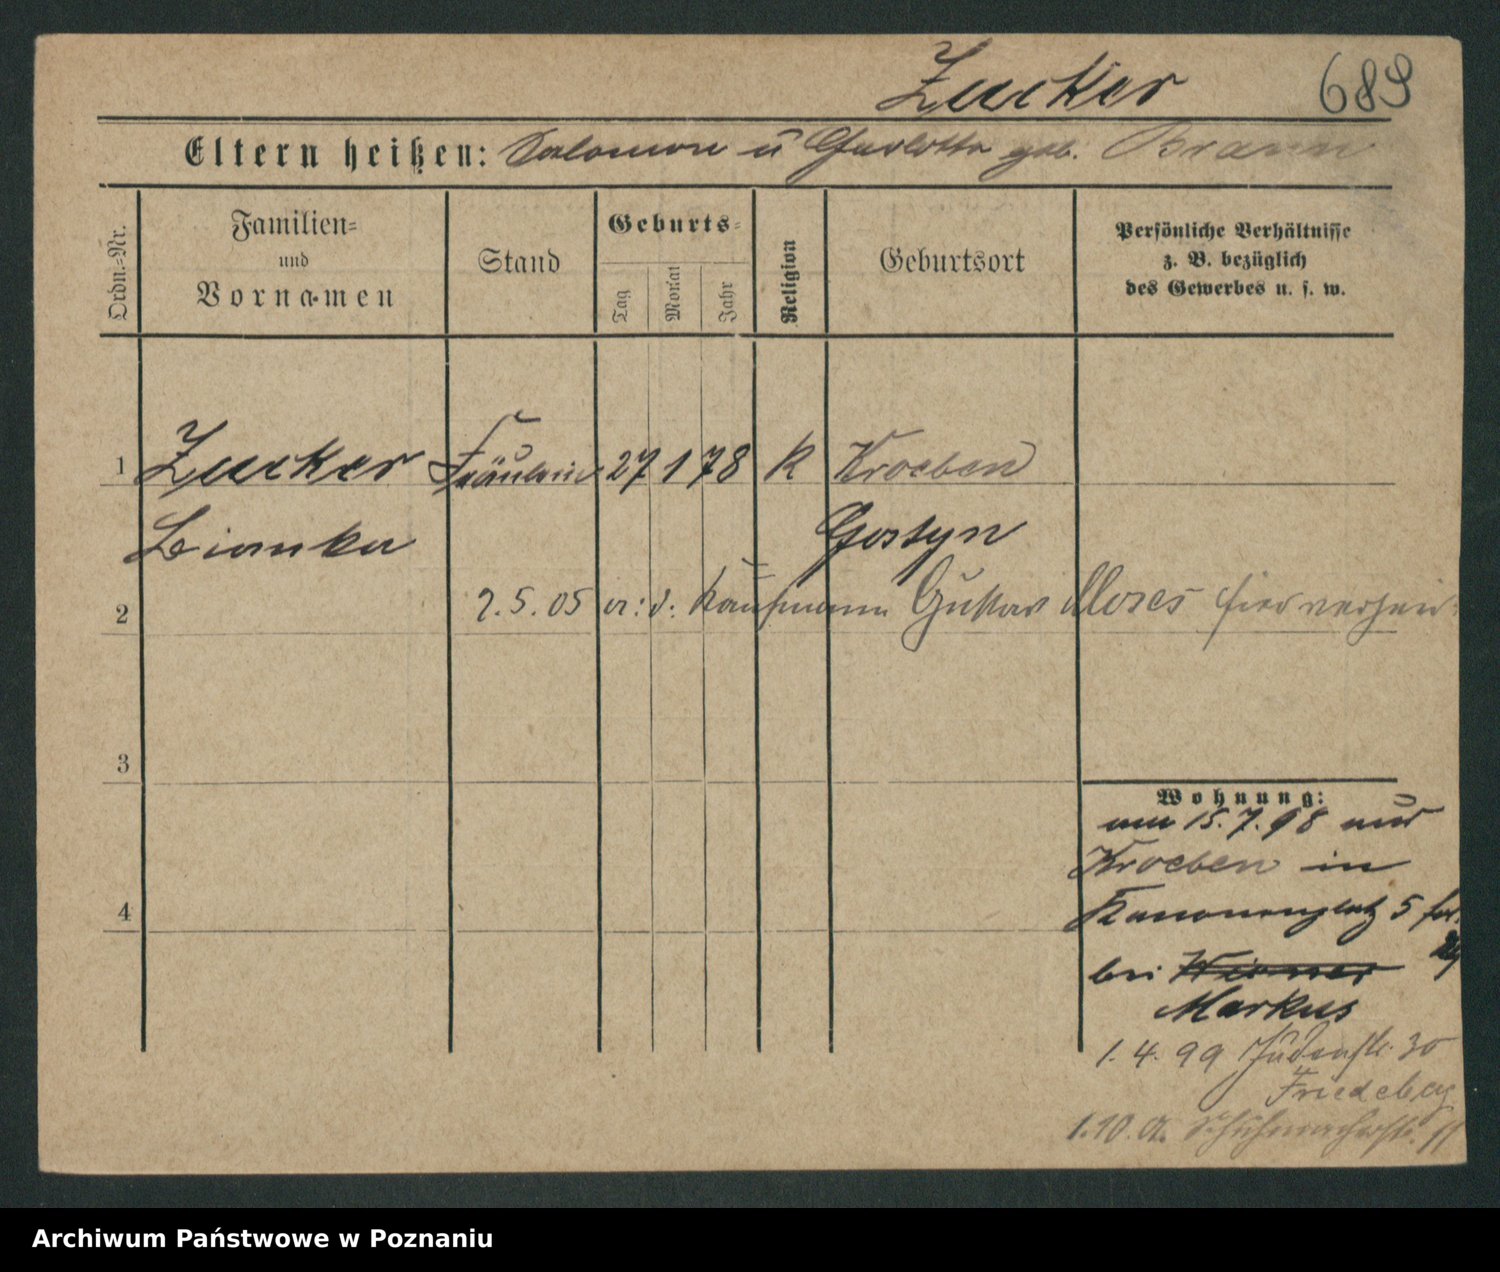 Zucker 689
Eltern heißen: Salomon u Charlotte geb. Braun
Ordn.-Nr.
Familien-
und
Vornamen
Stand
Geburts-
Tag
Monat
Jahr
Religion
Geburtsort
Persönliche Verhältnisse
z. B. bezüglich
des Gewerbes u. s. w.
1 Zucker Fräulein 27 1 78 Kroeben
Bianka Gostyn
2 2.5.05 Kaufmann Gustav Moses hier verheir:
3
Wohnung:
15.7.98 aus
Kroeben in
4 Kanonenplatz 5
bei Wiener
Markus
1.4.99 Judenstr. 30
Friedeberg
1.10. Schuhmacherstr. 11
Archiwum Państwowe w Poznaniu